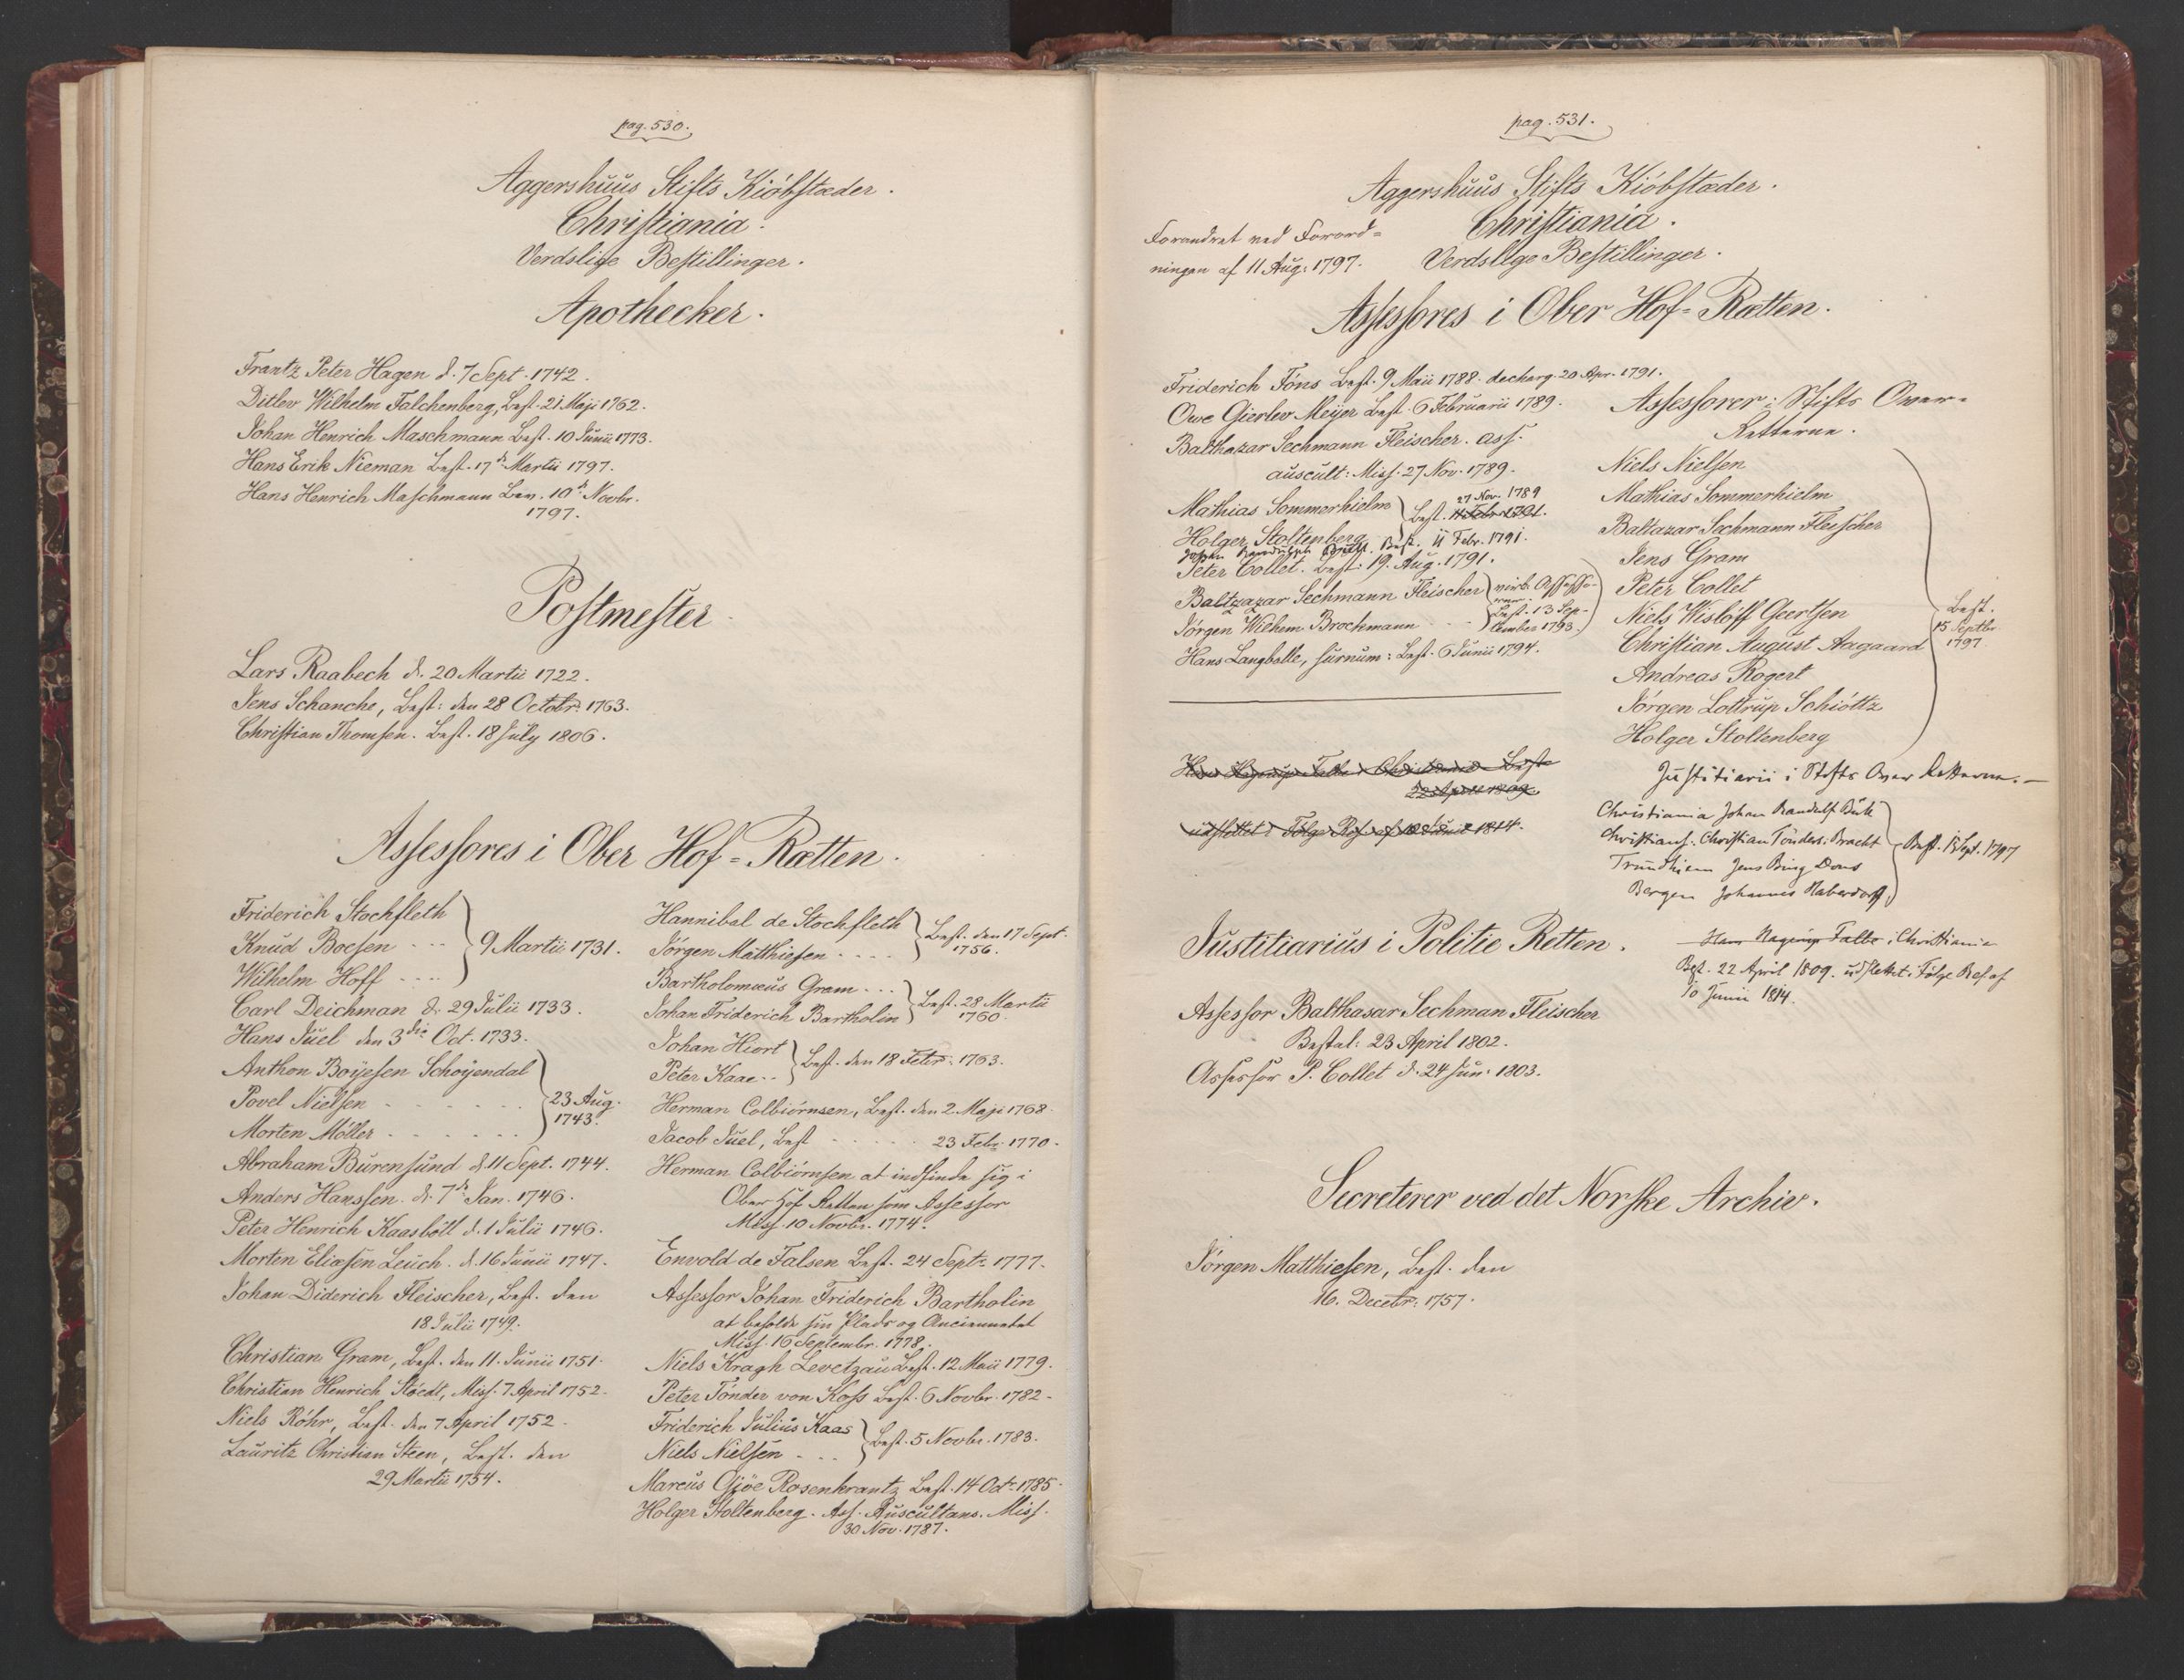 pag. 530.
Aggershuus Stifts Kiöbstæder.
Christiania.
Verdslige Bestillinger.
Apothecker.
Frantz Peter Hagen d. 7 Sept. 1742.
Ditlev Wilhelm Falchenberg, Best. 21 Maji 1762.
Johan Henrich Maschmann Best. 10 Junii 1773.
Hans Erik Nieman Best. 17de Martii 1797.
Hans Henrich Maschmann Bev. 10de Novbr.
1797.
Postmester
Lars Raabech d. 20 Martii 1722.
Jens Schanche, Best: den 28 Octobr: 1763.
Christian Thomsen. Best. 18 July 1806.
Assessores i Ober Hof=Rætten.
Friderich Stochfleth
Knud Boesen - - -
Wilhelm Hoff - - - -
9 Martii 1731.
Carl Deichman d. 29 Julii 1733.
Hans Juel den 3die Oct. 1733.
Anthon Boyesen Schoyendal
Povel Nielsen - - - - - -
Morten Möller - - - - - -
23 Aug.
1743.
Abraham Burensund d. 11 Sept. 1744.
Anders Hanssen. d. 7de Jan. 1746.
Peter Henrich Kaasböll d. 1 Julii 1746.
Morten Eliæsen Leuch. d. 16 Junii 1747.
Johan Diderich Fleischer, Best. den
18 Julii 1749.
Christian Gram, Best. den 11. Junii 1751.
Christian Henrich Stöedt, Miss. 7 April 1752.
Niels Röhr, Best. den 7 April 1752.
Lauritz Christian Steen, Best. den
29 Martii 1754.
Hannibal de Stochfleth
Jörgen Matthiesen - - - -
Best. den 17 Sept.
1756.
Bartholomæus Gram - - -
Johan Friderich Bartholin
Best. 28 Martii
1760.
Johan Hiort
Peter Kaae - -
Best. den 18 Febr: 1763.
Herman Colbiörnsen, Best. den 2 Maji 1768.
Jacob Juel, Best - - - - - 23 Febr. 1770.
Herman Colbiörnsen at indfinde sig i
Ober Hof Retten som Assessor
Miss. 10 Novbr. 1774.
Envold de Falsen Best. 24 Septr. 1777.
Assessor Johan Friderich Bartholin
at beholde sin Plads og Anciennetet
Miss. 16 Septembr. 1778.
Niels Kragh Levetzau Best. 12 Maii 1779.
Peter Tönder von Koss Best. 6 Novbr. 1782.
Friderich Julius Kaas
Niels Nielsen - - - -
Best. 5 Novbr. 1783.
Marcus Gjöe Rosenkrantz Best. 14 Octr. 1785.
Holger Stoltenberg. Ass. Auscultans. Miss.
30 Nov. 1787.
pag. 531.
Aggershuus Stifts Kiöbstæder.
Christiania.
Forandret ved Forord=
ningen af 11 Aug: 1797.
Verdslige Bestillinger.
Assessores i Ober Hof=Rætten.
Friderich Föns Best. 9 Maii 1788. decharg. 20 Apr. 1791.
Owe Gierlev Meyer Best. 6 Februarii 1789.
Balthazar Sechmann Fleischer. ass.
auscult: Miss. 27 Nov. 1789.
Mathias Sommerhielm
27 Nov. 1789
Best. 11 Febr. 1791.
Holger Stoltenberg
Johan Randulph Bull. Best. 11 Febr. 1791.
Peter Collet. Best: 19. Aug. 1791.
Baltzazar Sechmann Fleischer
Jörgen Wilhem Brochmann - - -
Best. 13 Sep-
tember 1793.
Hans Langballe, surnum: Best. 6 Junii 1794.
Assessorer i Stifts Over=
Retterne.
Niels Nielsen
Mathias Sommerhielm
Baltazar Sechmann Fleischer
Jens Gram
Peter Collet
Niels Wislöff Geertsen
Christian August Aagaard
Andreas Rogert
Jörgen Lottrup Schiöttz
Holger Stoltenberg
Best.
15 Septbr.
1797
Hans Hagerup Falbe i Christiania Best.
22 April 1809.
udslettet i Følge Res. af 10 Junii 1814.
Justitiarii i Stifts Over Retterne.
Christiania Johan Randulf Bull
Christians. Christian Tönder. Bracht
Trundhiem Jens Bing Dons
Bergen Johannes Haberdorf
Best. 15 Sept. 1797
Hans Hagerup Falbe i Christiania
Best. 22 April 1809. udslettet i Følge Res af
10 Junii 1814.
Justitiarius i Politie Retten.
Assessor Balthasar Sechman Fleischer
Bestal: 23 April 1802.
Assessor P. Collet d. 24 Jun: 1803.
Secreterer ved det Norske Archiv.
Jörgen Matthiesen, Best. den
16. Decebr: 1757.